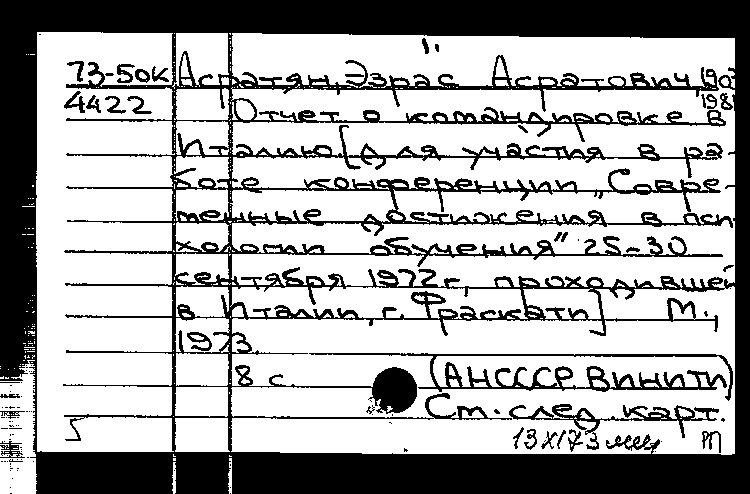 1.
73-50К Асратян, Эзрас Асратович, 1903
4422 Отчет о командировке в 1981
Италию [для участия в ра-
боте конференции „Совре-
менные достижения в пси-
хологии обучения" 25-30
сентября 1972г, проходившей
в Италии, г. Фраскати] М.,
1973.
8 с.
(АНСССР ВИНИТИ)
См. след. карт.
5 13XI73 т